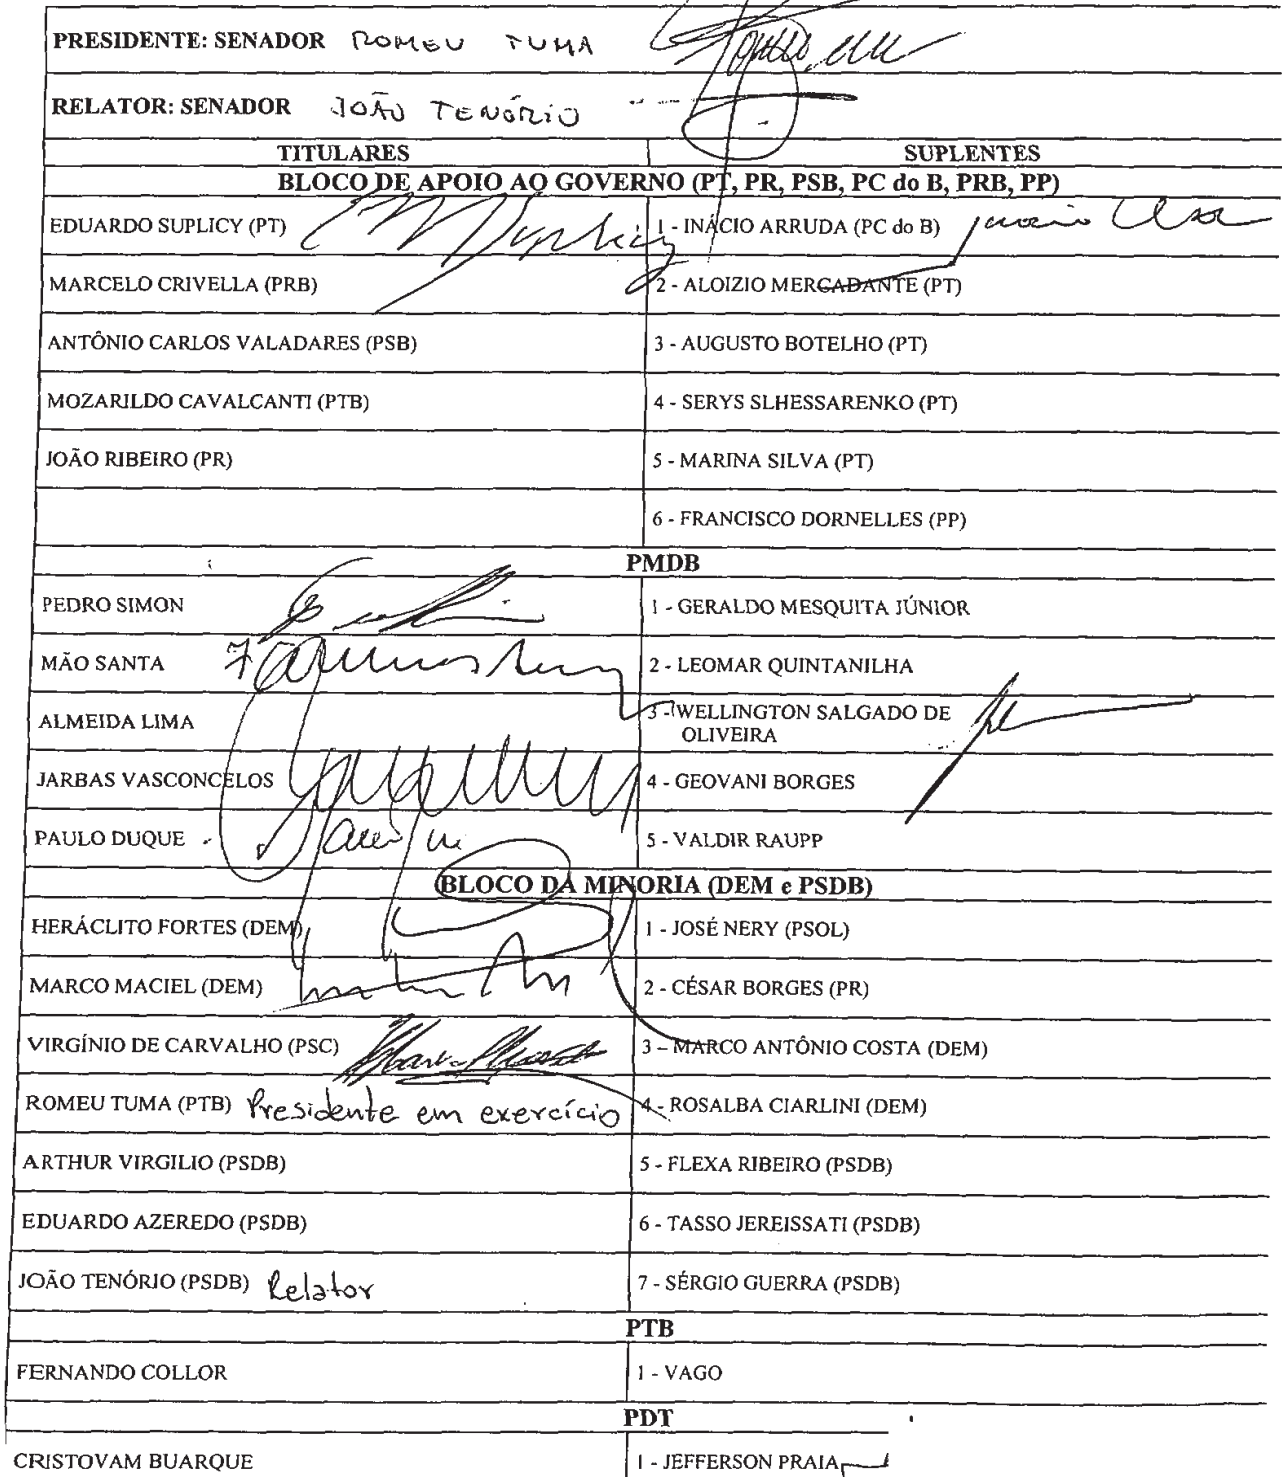 PRESIDENTE: SENADOR ROMEU TUMA
RELATOR: SENADOR JOÃO TENÓRIO
TITULARES SUPLENTES
BLOCO DE APOIO AO GOVERNO (PT, PR, PSB, PC do B, PRB, PP)
EDUARDO SUPLICY (PT) 1 - INÁCIO ARRUDA (PC do B)
MARCELO CRIVELLA (PRB) 2 - ALOIZIO MERCADANTE (PT)
ANTÔNIO CARLOS VALADARES (PSB) 3 - AUGUSTO BOTELHO (PT)
MOZARILDO CAVALCANTI (PTB) 4 - SERYS SLHESSARENKO (PT)
JOÃO RIBEIRO (PR) 5 - MARINA SILVA (PT)
6 - FRANCISCO DORNELLES (PP)
PMDB
PEDRO SIMON 1 - GERALDO MESQUITA JÚNIOR
MÃO SANTA 2 - LEOMAR QUINTANILHA
ALMEIDA LIMA 3 - WELLINGTON SALGADO DE
OLIVEIRA
JARBAS VASCONCELOS 4 - GEOVANI BORGES
PAULO DUQUE 5 - VALDIR RAUPP
BLOCO DA MINORIA (DEM e PSDB)
HERÁCLITO FORTES (DEM) 1 - JOSÉ NERY (PSOL)
MARCO MACIEL (DEM) 2 - CÉSAR BORGES (PR)
VIRGÍNIO DE CARVALHO (PSC) 3 – MARCO ANTÔNIO COSTA (DEM)
ROMEU TUMA (PTB) Presidente em exercício 4 - ROSALBA CIARLINI (DEM)
ARTHUR VIRGILIO (PSDB) 5 - FLEXA RIBEIRO (PSDB)
EDUARDO AZEREDO (PSDB) 6 - TASSO JEREISSATI (PSDB)
JOÃO TENÓRIO (PSDB) Relator 7 - SÉRGIO GUERRA (PSDB)
PTB
FERNANDO COLLOR 1 - VAGO
PDT
CRISTOVAM BUARQUE 1 - JEFFERSON PRAIA